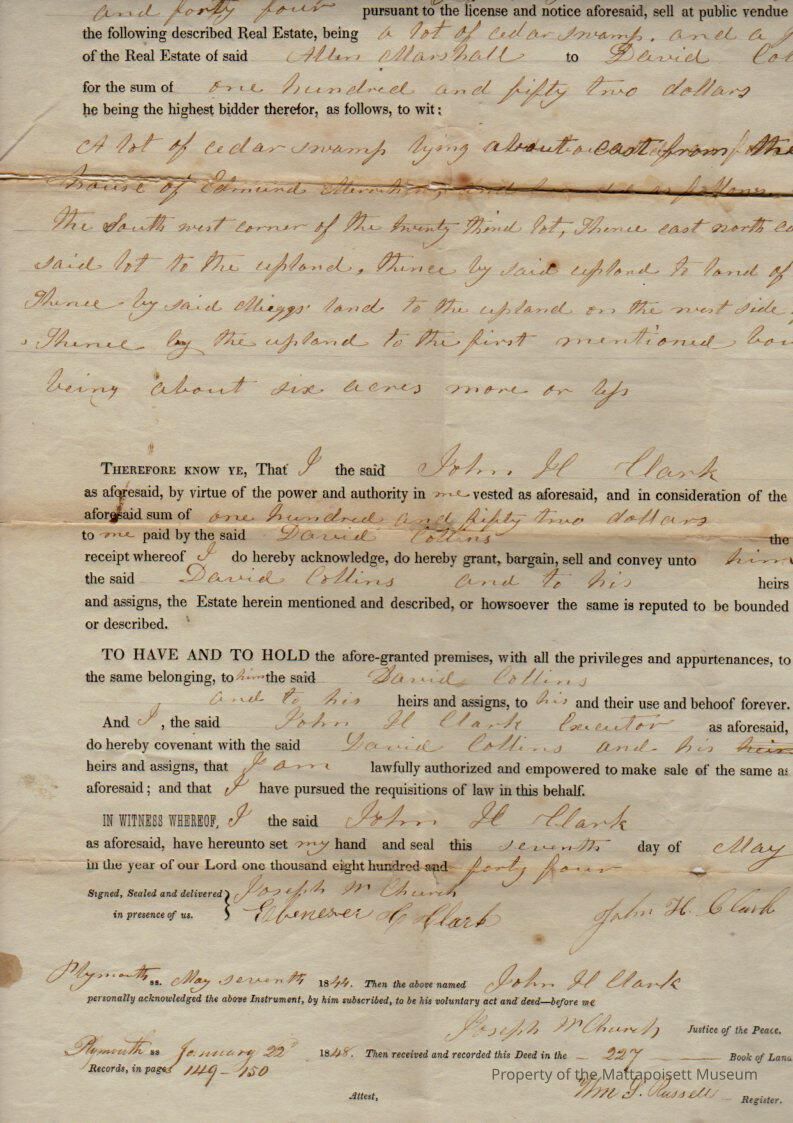 and forty four pursuant to the license and notice aforesaid, sell at public vendue
the following described Real Estate, being a lot of cedar swamp, and a
of the Real Estate of said Allen Marshall to David Col
for the sum of one hundred and fifty two dollars
he being the highest bidder therefor, as follows, to wit:
A lot of cedar swamp lying about east from the
house of Edmund and as follows
the South west corner of the twenty third lot, Thence east north
said lot to the upland, thence by said upland to land of
Thence by said Meiggs' land to the upland on the west side
Thence by the upland to the first mentioned bou
being about six acres more or less
THEREFORE KNOW YE, That I the said John H Clark
as aforesaid, by virtue of the power and authority in me vested as aforesaid, and in consideration of the
aforesaid sum of one hundred and fifty two dollars
to me paid by the said David Collins the
receipt whereof I do hereby acknowledge, do hereby grant, bargain, sell and convey unto him
the said David Collins and to his heirs
and assigns, the Estate herein mentioned and described, or howsoever the same is reputed to be bounded
or described.
TO HAVE AND TO HOLD the afore-granted premises, with all the privileges and appurtenances, to
the same belonging, to him the said David Collins
and to his heirs and assigns, to his and their use and behoof forever.
And I, the said John H Clark Executor as aforesaid,
do hereby covenant with the said David Collins and his heirs
heirs and assigns, that I am lawfully authorized and empowered to make sale of the same as
aforesaid; and that I have pursued the requisitions of law in this behalf.
IN WITNESS WHEREOF, I the said John H Clark
as aforesaid, have hereunto set my hand and seal this seventh day of May
in the year of our Lord one thousand eight hundred and forty four
Signed, Sealed and delivered } Joseph M Church
in presence of us. Ebenezer C Clark John H. Clark
Plymouth ss. May seventh 1844. Then the above named John H Clark
personally acknowledged the above Instrument, by him subscribed, to be his voluntary act and deed—before me
Joseph M Church Justice of the Peace.
Plymouth ss January 22d 1848. Then received and recorded this Deed in the 227 Book of Land
Records, in pages 149 - 150
Property of the Mattapoisett Museum
Attest, Wm S. Russell Register.